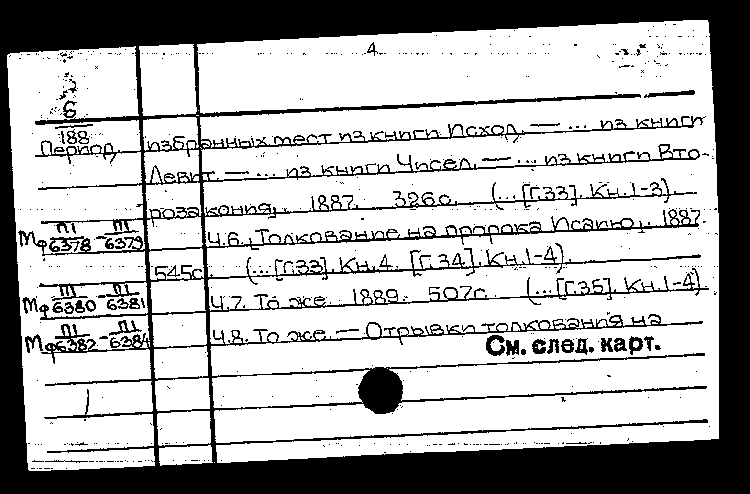 4
6
188
Период. избранных мест из книги Исход. — ... из книги
Левит. — ... из книги Чисел. — ... из книги Вто-
розакония,. 1887. 326с. (...[Г.33]. Кн.1-3).
Мф П1/6378 - П1/6379 Ч.6. Толкование на пророка Исаию,. 1887.
545с. (...[Г.33]. Кн.4. [Г.34]. Кн.1-4).
Мф П1/6380 - П1/6381 Ч.7. То же. 1889. 507с. (...[Г.35]. Кн.1-4)
Мф П1/6382 - П1/6384 Ч.8. То же. — Отрывки толкования на
См. след. карт.